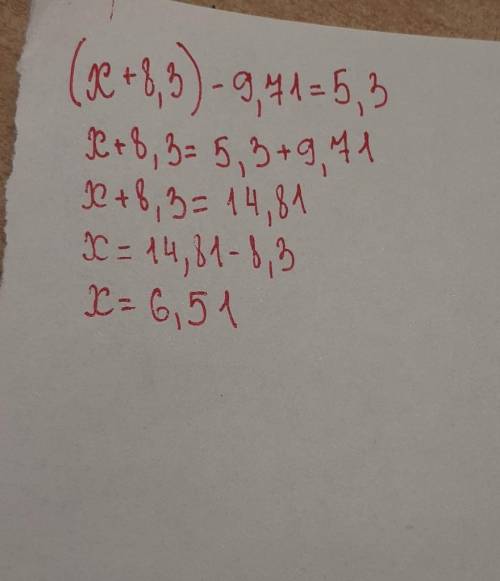 (x+8,3)-9,71=5,3
x+8,3=5,3+9,71
x+8,3=14,81
x=14,81-8,3
x=6,51